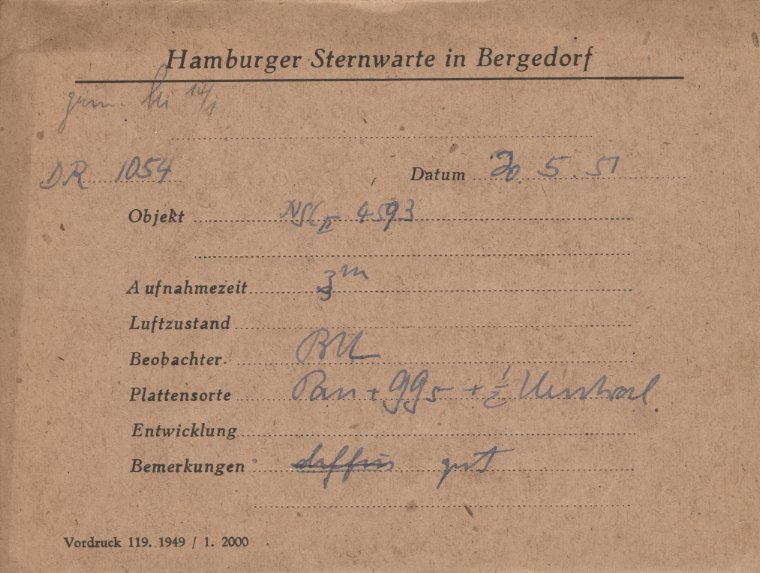 Hamburger Sternwarte in Bergedorf
DR 1054 Datum 20. 5. 51
Objekt 4593
Aufnahmezeit 3m
Luftzustand
Beobachter
Plattensorte Pan + 99 + 1/2 Neutral
Entwicklung
Bemerkungen diffus gut
Vordruck 119. 1949 / 1. 2000